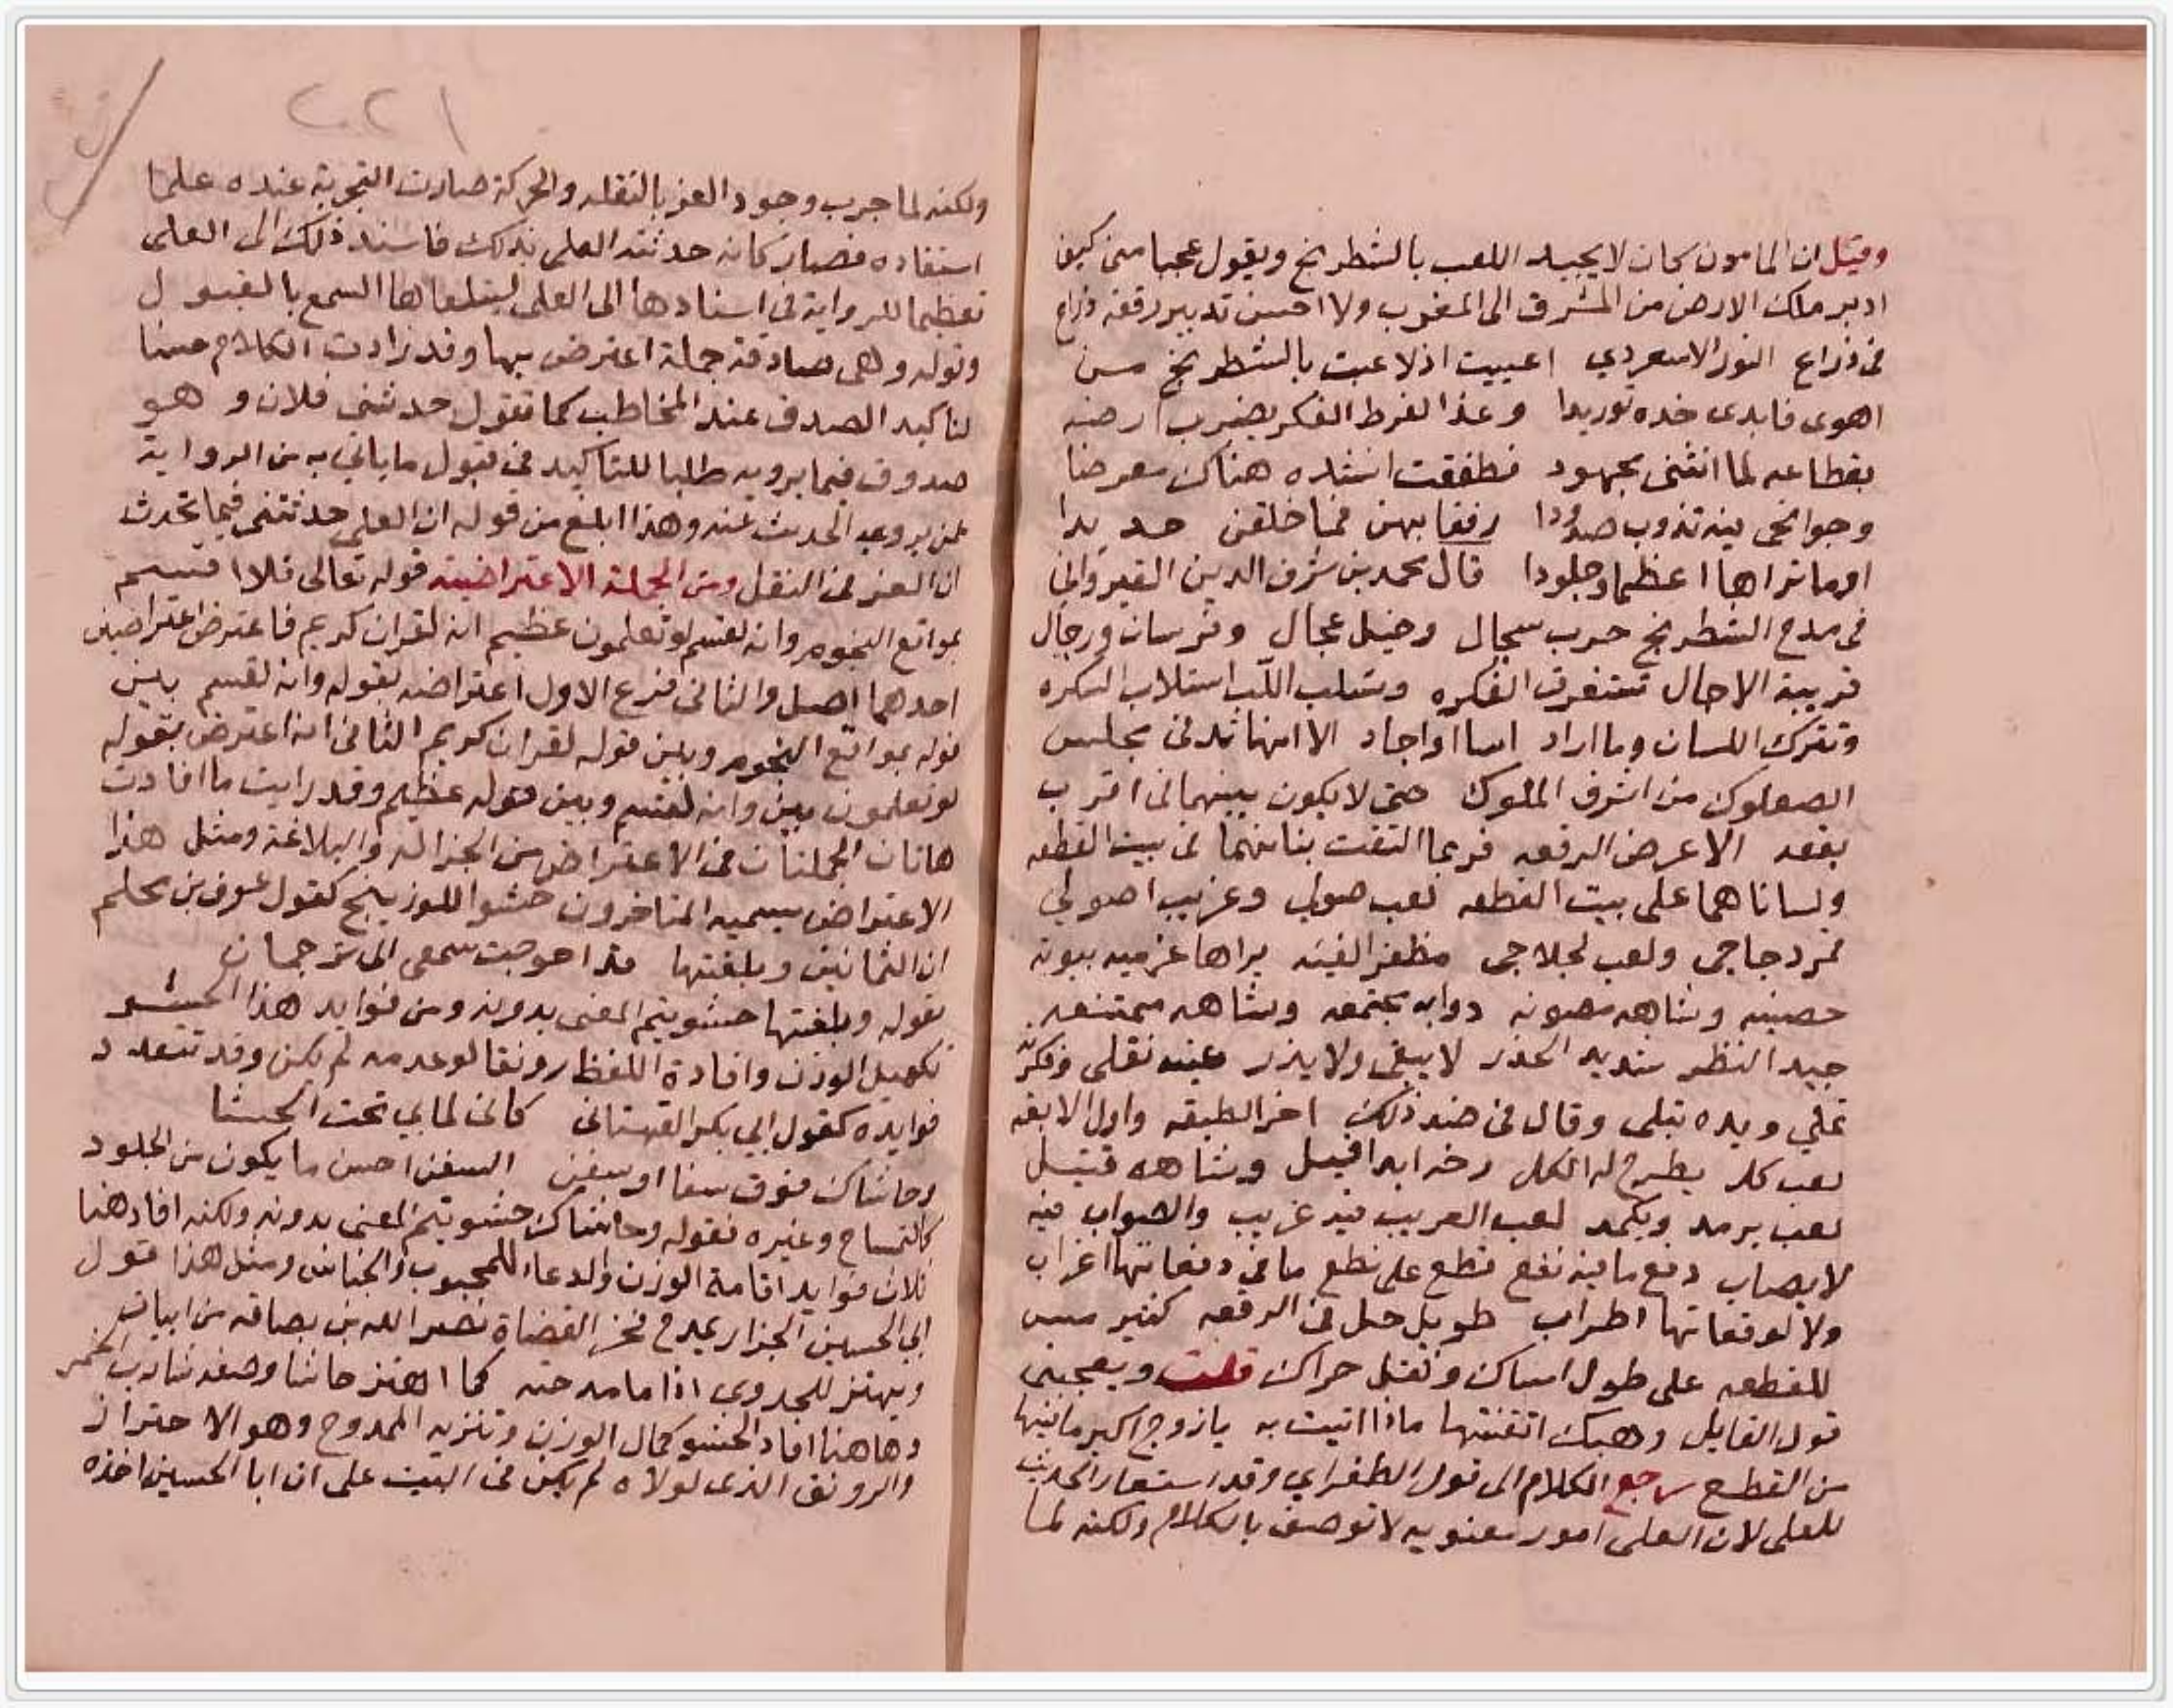 وقيل ان المامون كان لا يجيد اللعب بالشطرنج ويقول عجبا مني كيف
ادبر ملك الارض من المشرق الى المغرب ولا احسن تدبير رقعه ذراع
في ذراع النور الاسعردي اعييت اذ لاعبت بالشطرنج من
اهوى فابدى خده توريدا وغدا لفرط الفكر يضرب ارضه
بقطاعه لما انثنى مجهود فطفقت انشده هناك معرضا
وجوانحي فيه تذوب صدودا رفقا بهن فما خلقن حديدا
اوما تراها اعظما وجلودا قال محمد بن شرف الدين القيرواني
في مدح الشطرنج حرب سجال وخيل عجال وفرسان ورجال
قريبة الاجال تستغرق الفكره وتسلب اللب استلاب السكره
وتترك اللسان وما اراد اسا او اجاد الا انها تدني مجلس
الصعلوك من اشرف الملوك حتى لا يكون بينهما في اقرب
بقعه الا عرض الرقعه فربما التقت بنانهما في بيت القطعه
ولساناهما على بيت القطعه لعب صولي وغريب اصولي
نمردجاجي ولعب لجلاجي مظفر الفئه يراها غرميه بيوته
حصينه وشاهه مصونه دوابه مجتمعه وشاهه ممتنعه
جيد النظر شديد الحذر لا يبقي ولا يذر عينه تقلي وفكرته
تملي ويده تبلي وقال في ضد ذلك اخر الطبقه واول الابقه
لعب كلا يطرح له الكل رخه ابدا قيل وشاهه قتيل
لعب يرمد ويكمد لعب الغريب فيه غريب والصواب فيه
لا يصاب دفع ما فيه نفع قطع على نطع ما في دفعاتها اغراب
ولا لوقعاتها اطراب طويل حل في الرقعه كثير مس
للقطعه على طول امساك وثقل حراك قلت ويعجبني
قول القايل وهبك اتقنتها ماذا اتيت به يا زوج اكبر ما فيها
من القطع رجع الكلام الى قول الطغراي وقد استعار الحديث
للعلى لان العلى امور معنويه لا توصف بالكلام ولكنه لما
٢٢١
ولكنه لما جرب وجود العز بالنقله والحركة صارت التجربة عنده علما
استفاده فصار كانه حدثته العلى بذلك فاسند ذلك الى العلى
تعظيما للرواية في اسنادها الى العلى ليتلقاها السمع بالقبول
وقوله وهي صادقة جملة اعترض بها وقد زادت الكلام حسنا
لتاكيد الصدق عند المخاطب كما تقول حدثني فلان وهو
صدوق فيما يرويه طلبا للتاكيد في قبول ما ياتي به من الرواية
لمن يروى الحديث عنه وهذا ابلغ من قوله ان العلى حدثتني فيما تحدث
ان العز في النقل ومن الجملة الاعتراضية قوله تعالى فلا اقسم
بمواقع النجوم وانه لقسم لو تعلمون عظيم انه لقران كريم فاعترض اعتراضين
احدهما اصل والثاني فرع الاول اعتراضه بقوله وانه لقسم بين
قوله بمواقع النجوم وبين قوله لقران كريم الثاني انه اعترض بقوله
لو تعلمون بين وانه لقسم وبين قوله عظيم وقد رايت ما افادت
هاتان الجملتان في الاعتراض من الجزالة والبلاغة ومثل هذا
الاعتراض يسميه المتاخرون حشو اللوزينج كقول عوف بن محلم
ان الثمانين وبلغتها قد احوجت سمعي الى ترجمان
بقوله وبلغتها حشو يتم المعنى بدونه ومن فوايد هذا الحشو
تكميل الوزن وافادة اللفظ رونقا لو عدمه لم يكن وقد تتعدد
فوايده كقول ابي بكر القهستاني كاني لما بي تحت الحشا
وحاشاك فوق سفا او سفن السفن احسن ما يكون من الجلود
كالتمساح وغيره فقوله وحاشاك حشو يتم المعنى بدونه ولكنه افاد هنا
ثلاث فوايد اقامة الوزن والدعاء للمحبوب والجناس ومثل هذا قول
ابي الحسين الجزار يمدح فخر القضاة نصر الله بن بصاقه من ابيات
ويهتز للجدوى اذا ما مدحته كما اهتز حاشا وصفه شارب الخمر
وهاهنا افاد الحشو كمال الوزن وتنزيه الممدوح وهو الاحتراز
والرونق الذي لولاه لم يكن في البيت على ان ابا الحسين اخذه